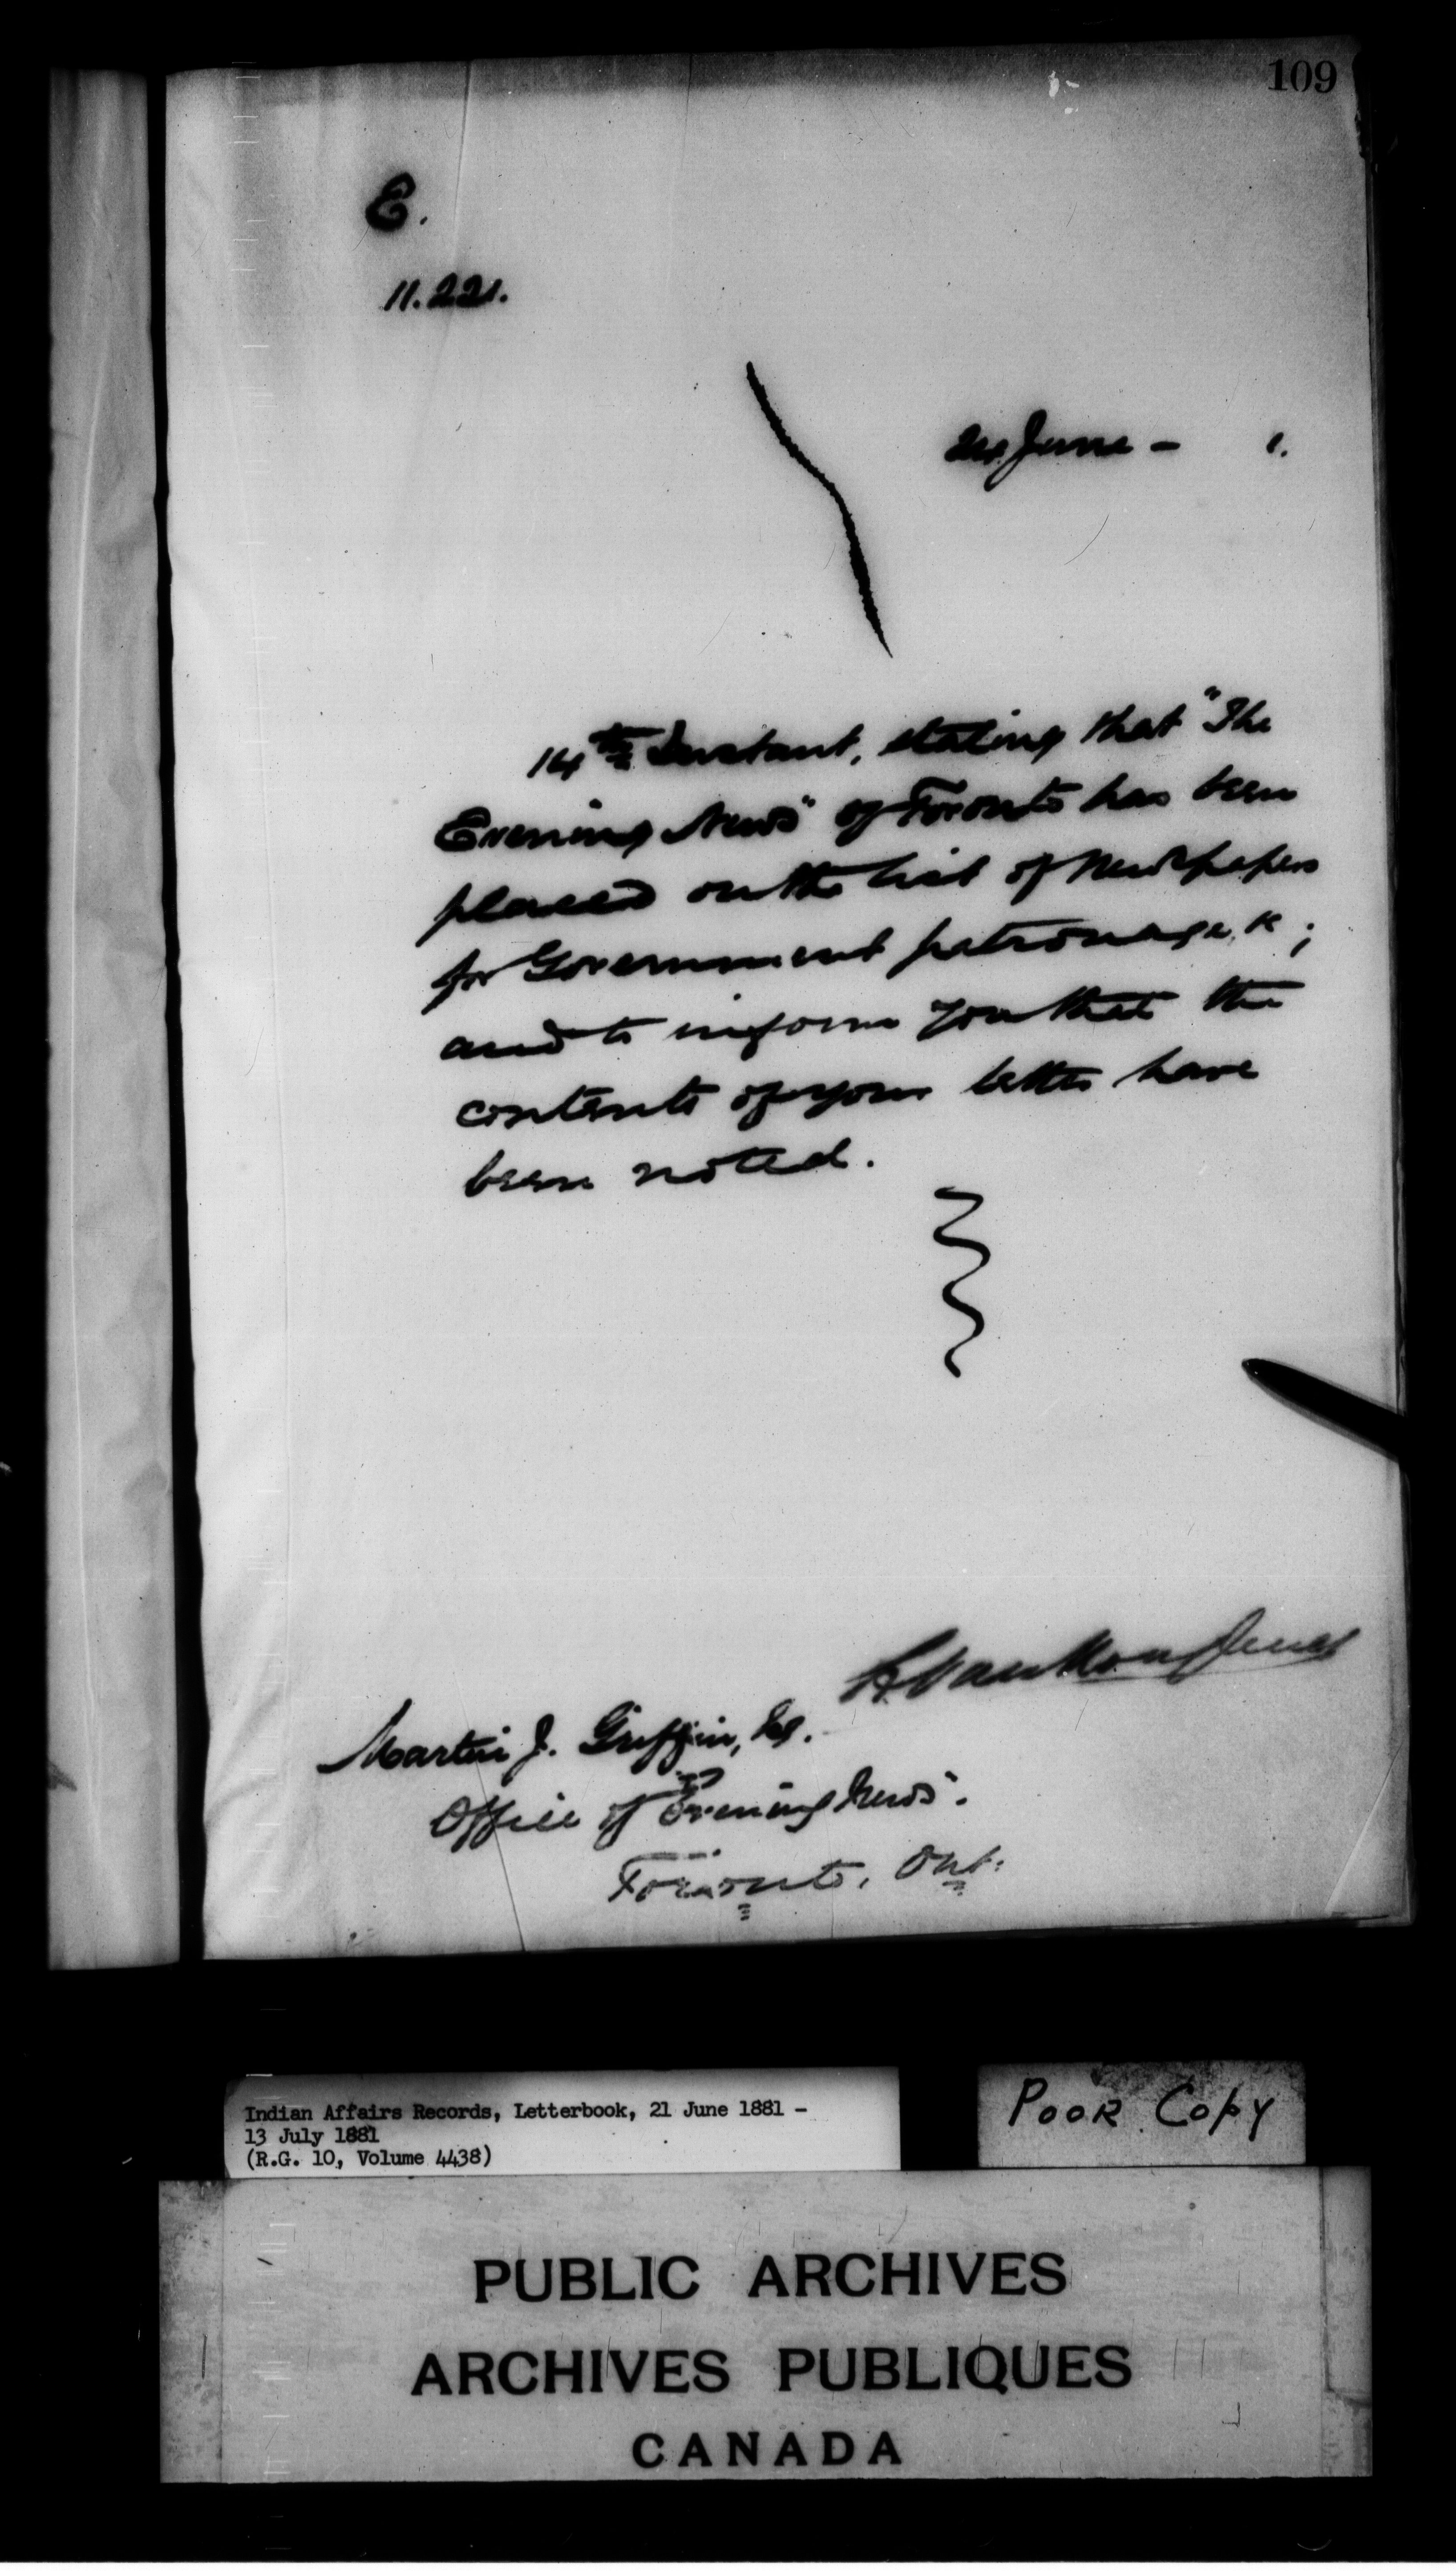 109
E.
11.221.
24 June - 1.
14th Instant, stating that "The
Evening News" of Toronto has been
placed on the list of Newspapers
for Government patronage, &c;
and to inform you that the
contents of your letter have
been noted.
Martin J. Griffin, Esq.
Office of "Evening News".
Toronto, Ont:
Indian Affairs Records, Letterbook, 21 June 1881 -
13 July 1881
(R.G. 10, Volume 4438)
POOR COPY
PUBLIC ARCHIVES
ARCHIVES PUBLIQUES
CANADA